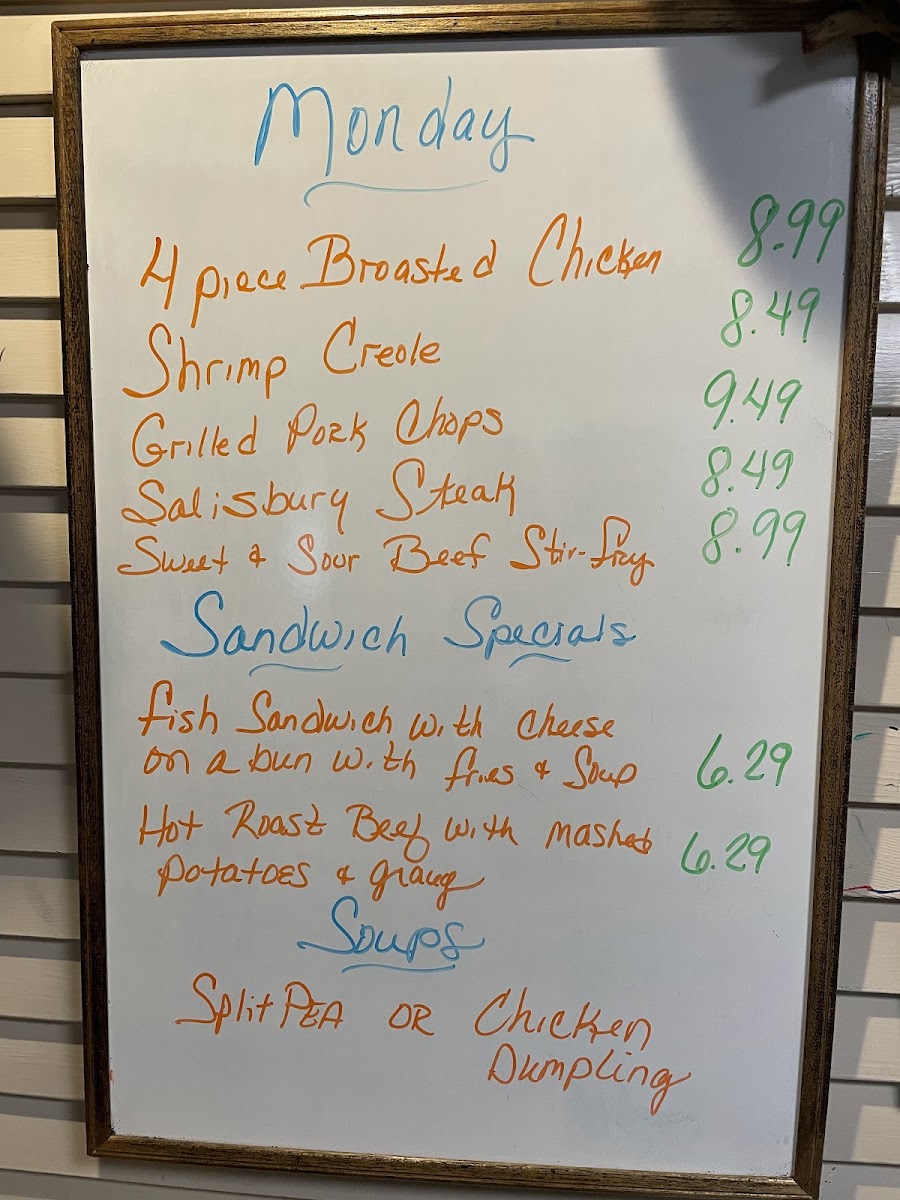 Monday
4 piece Broasted Chicken 8.99
Shrimp Creole 8.49
Grilled Pork Chops 9.49
Salisbury Steak 8.49
Sweet & Sour Beef Stir-fry 8.99
Sandwich Specials
fish Sandwich with cheese
on a bun with fries & Soup 6.29
Hot Roast Beef with mashed 6.29
potatoes & gravy
Soups
Split PEA OR Chicken
Dumpling